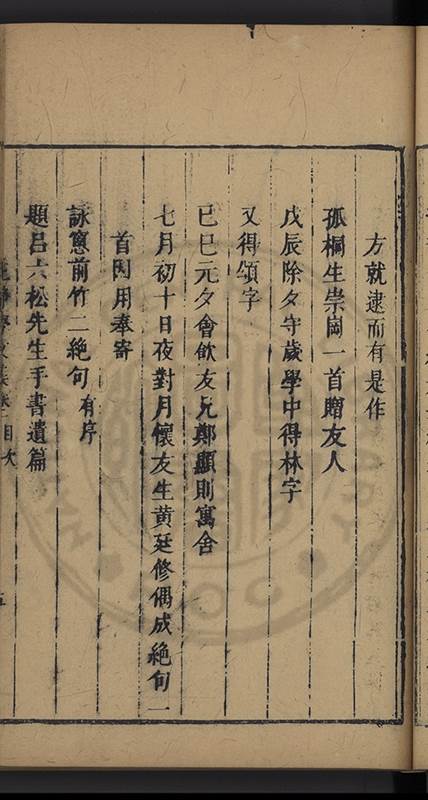 方就逮而有是作
孤桐生崇岡一首贈友人
戊辰除夕守歲學中得林字
又得頌字
己巳元夕會飲友兄鄭顯則寓舍
七月初十日夜對月懷友生黃廷修偶成絶句一
首因用奉寄
詠窻前竹二絶句有序
題呂六松先生手書遺篇
目次
五